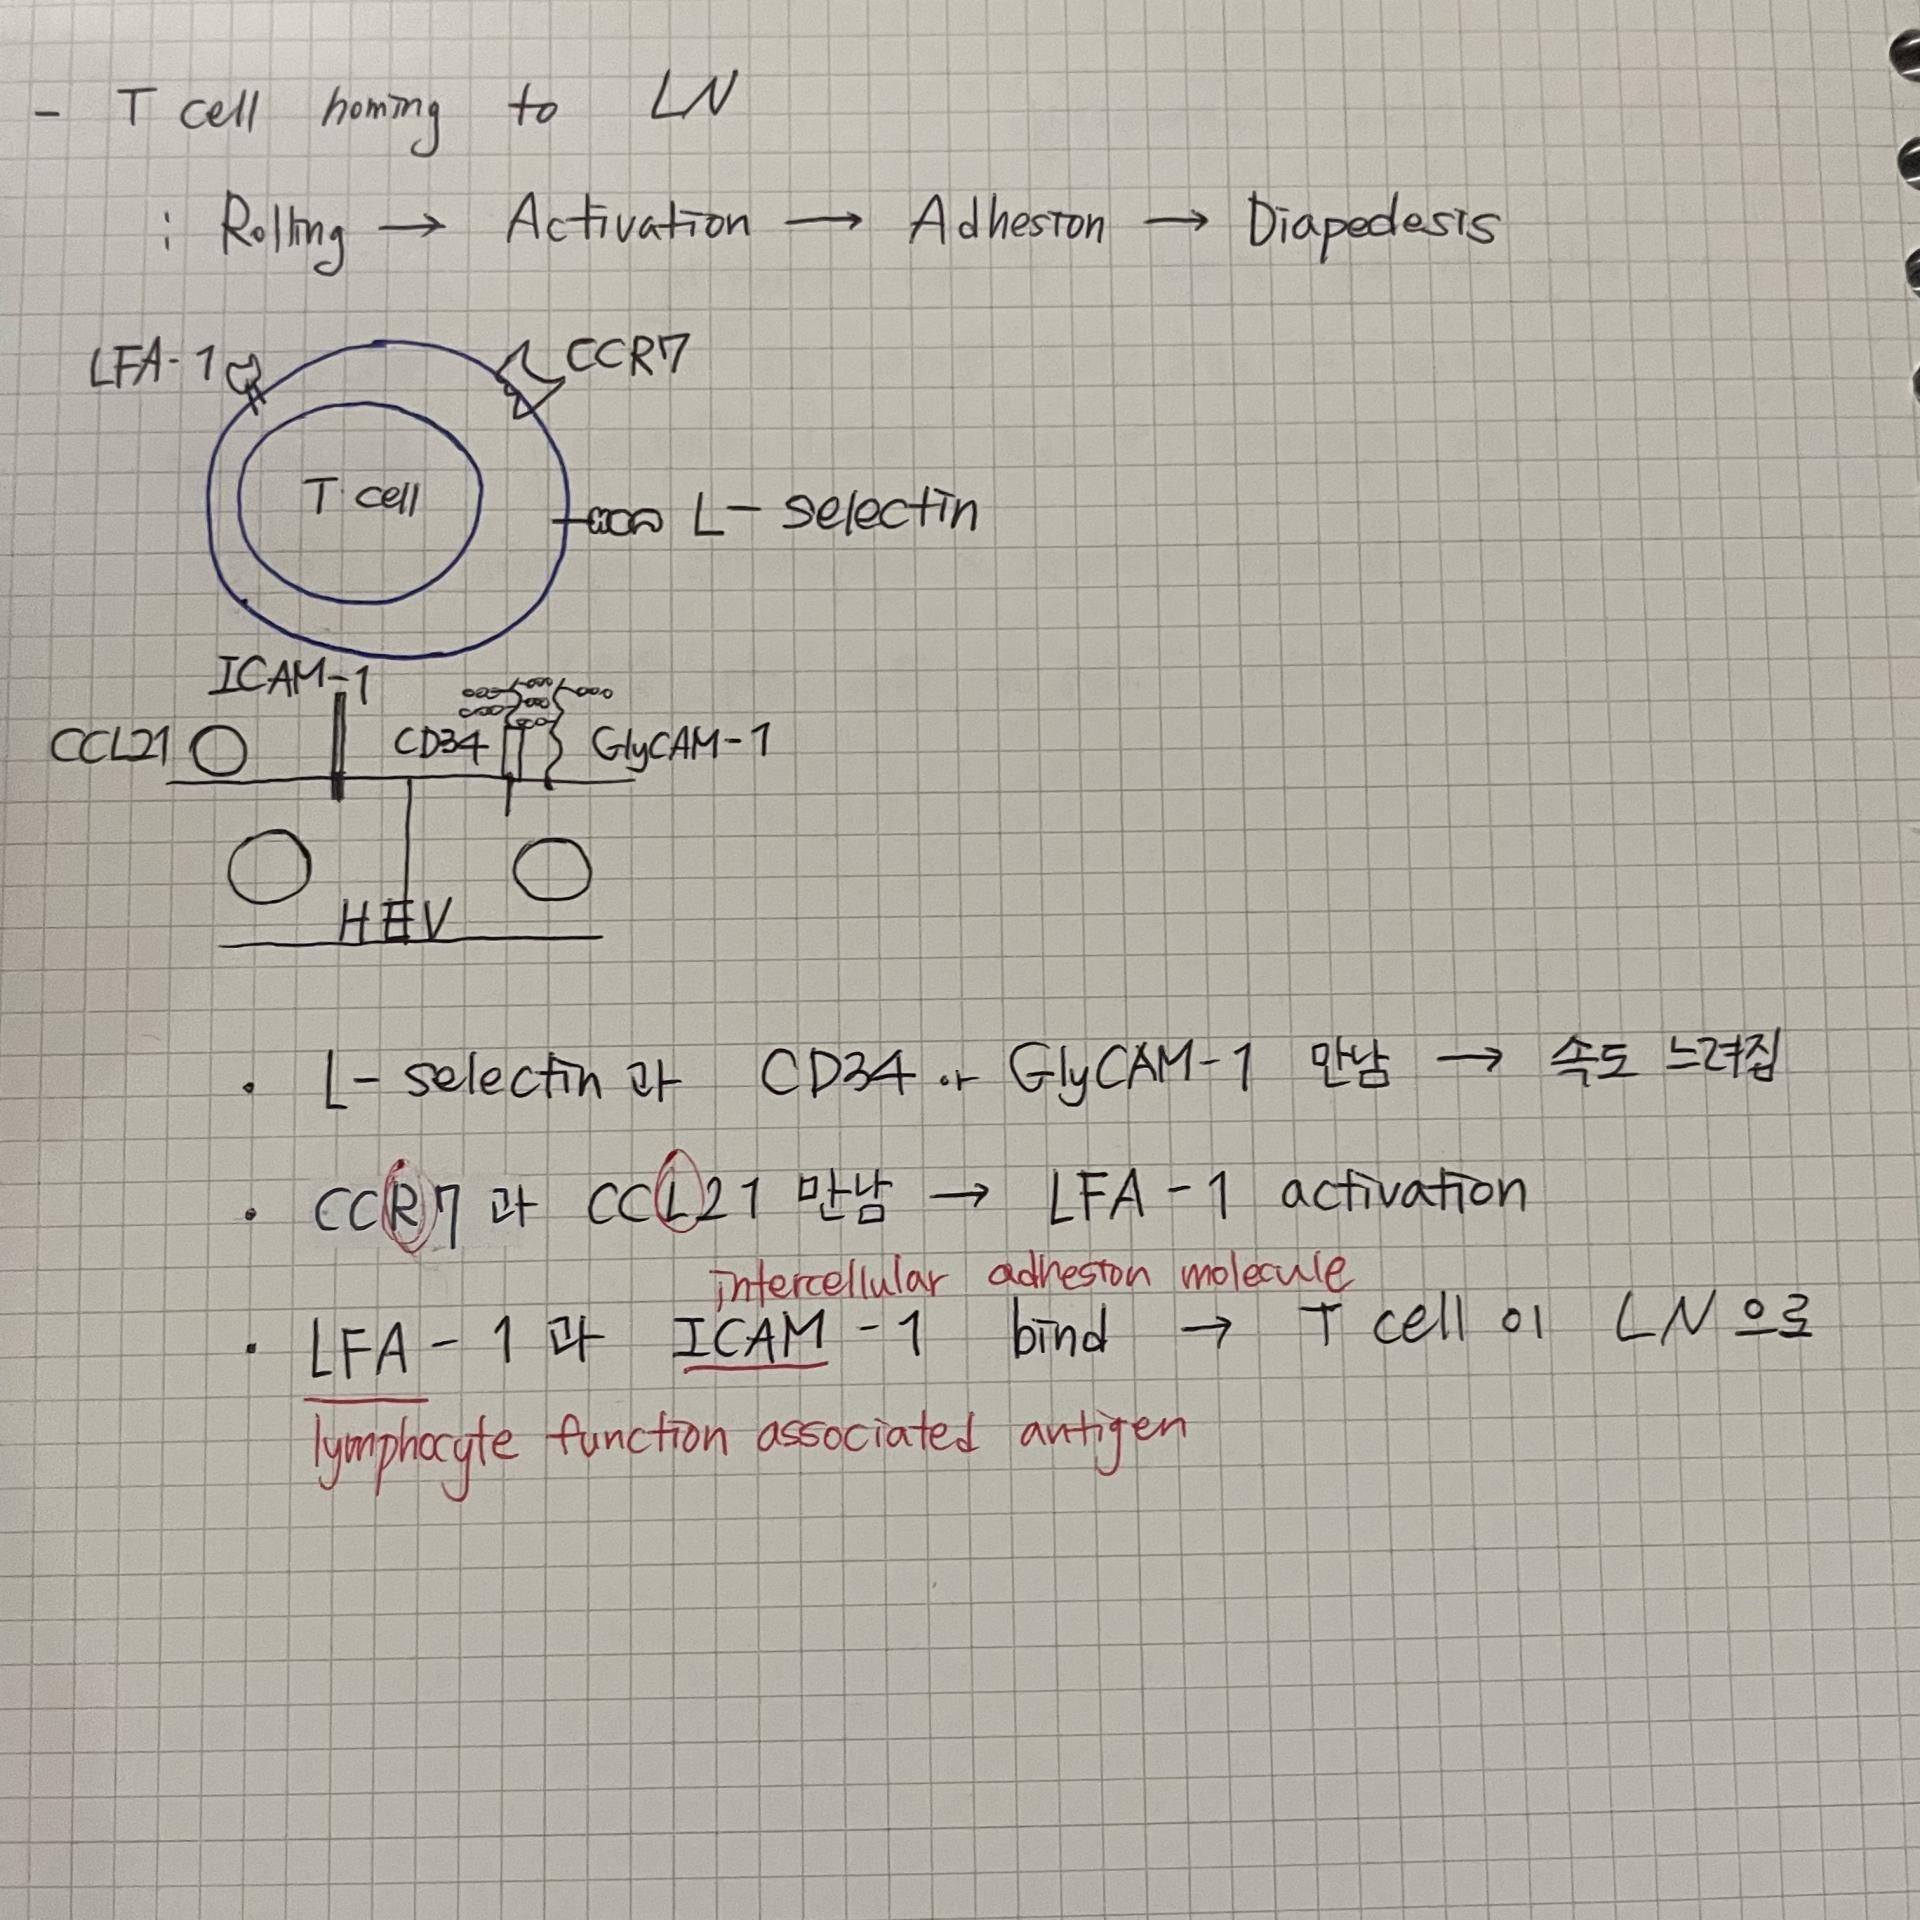 - T cell homing to LN
: Rolling → Activation → Adhesion → Diapedesis
LFA-1
CCR7
T cell
L- selectin
ICAM-1
CCL21
CD34
GlyCAM-1
HEV
· L- selectin 과 CD34 or GlyCAM-1 만남 → 속도 느려짐
· CCR7 과 CCL21 만남 → LFA-1 activation
intercellular adhesion molecule
· LFA-1 과 ICAM-1 bind → T cell 이 LN 으로
lymphocyte function associated antigen